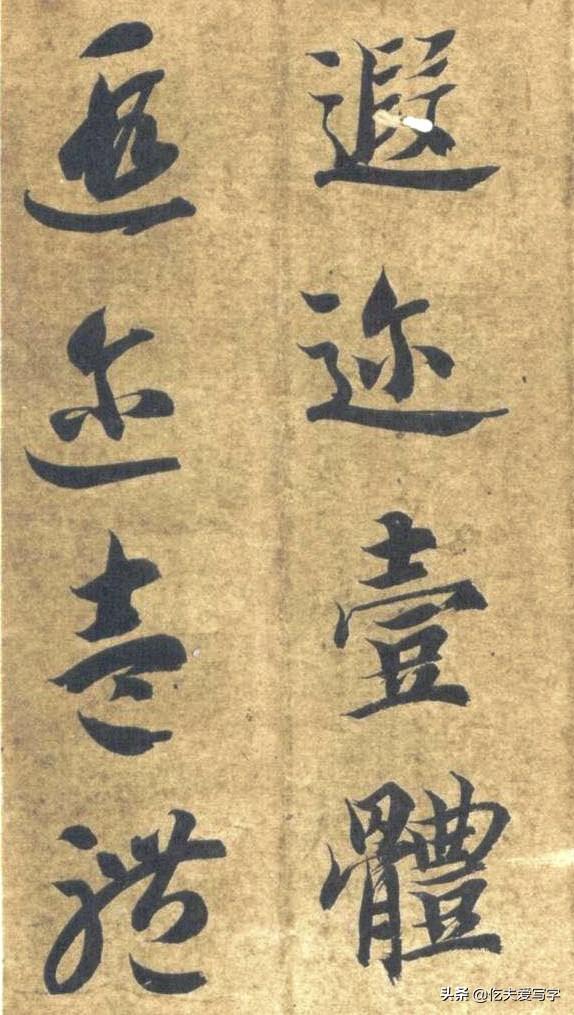 遐迩壹體
遐迩壹體
头条 @亿夫爱写字